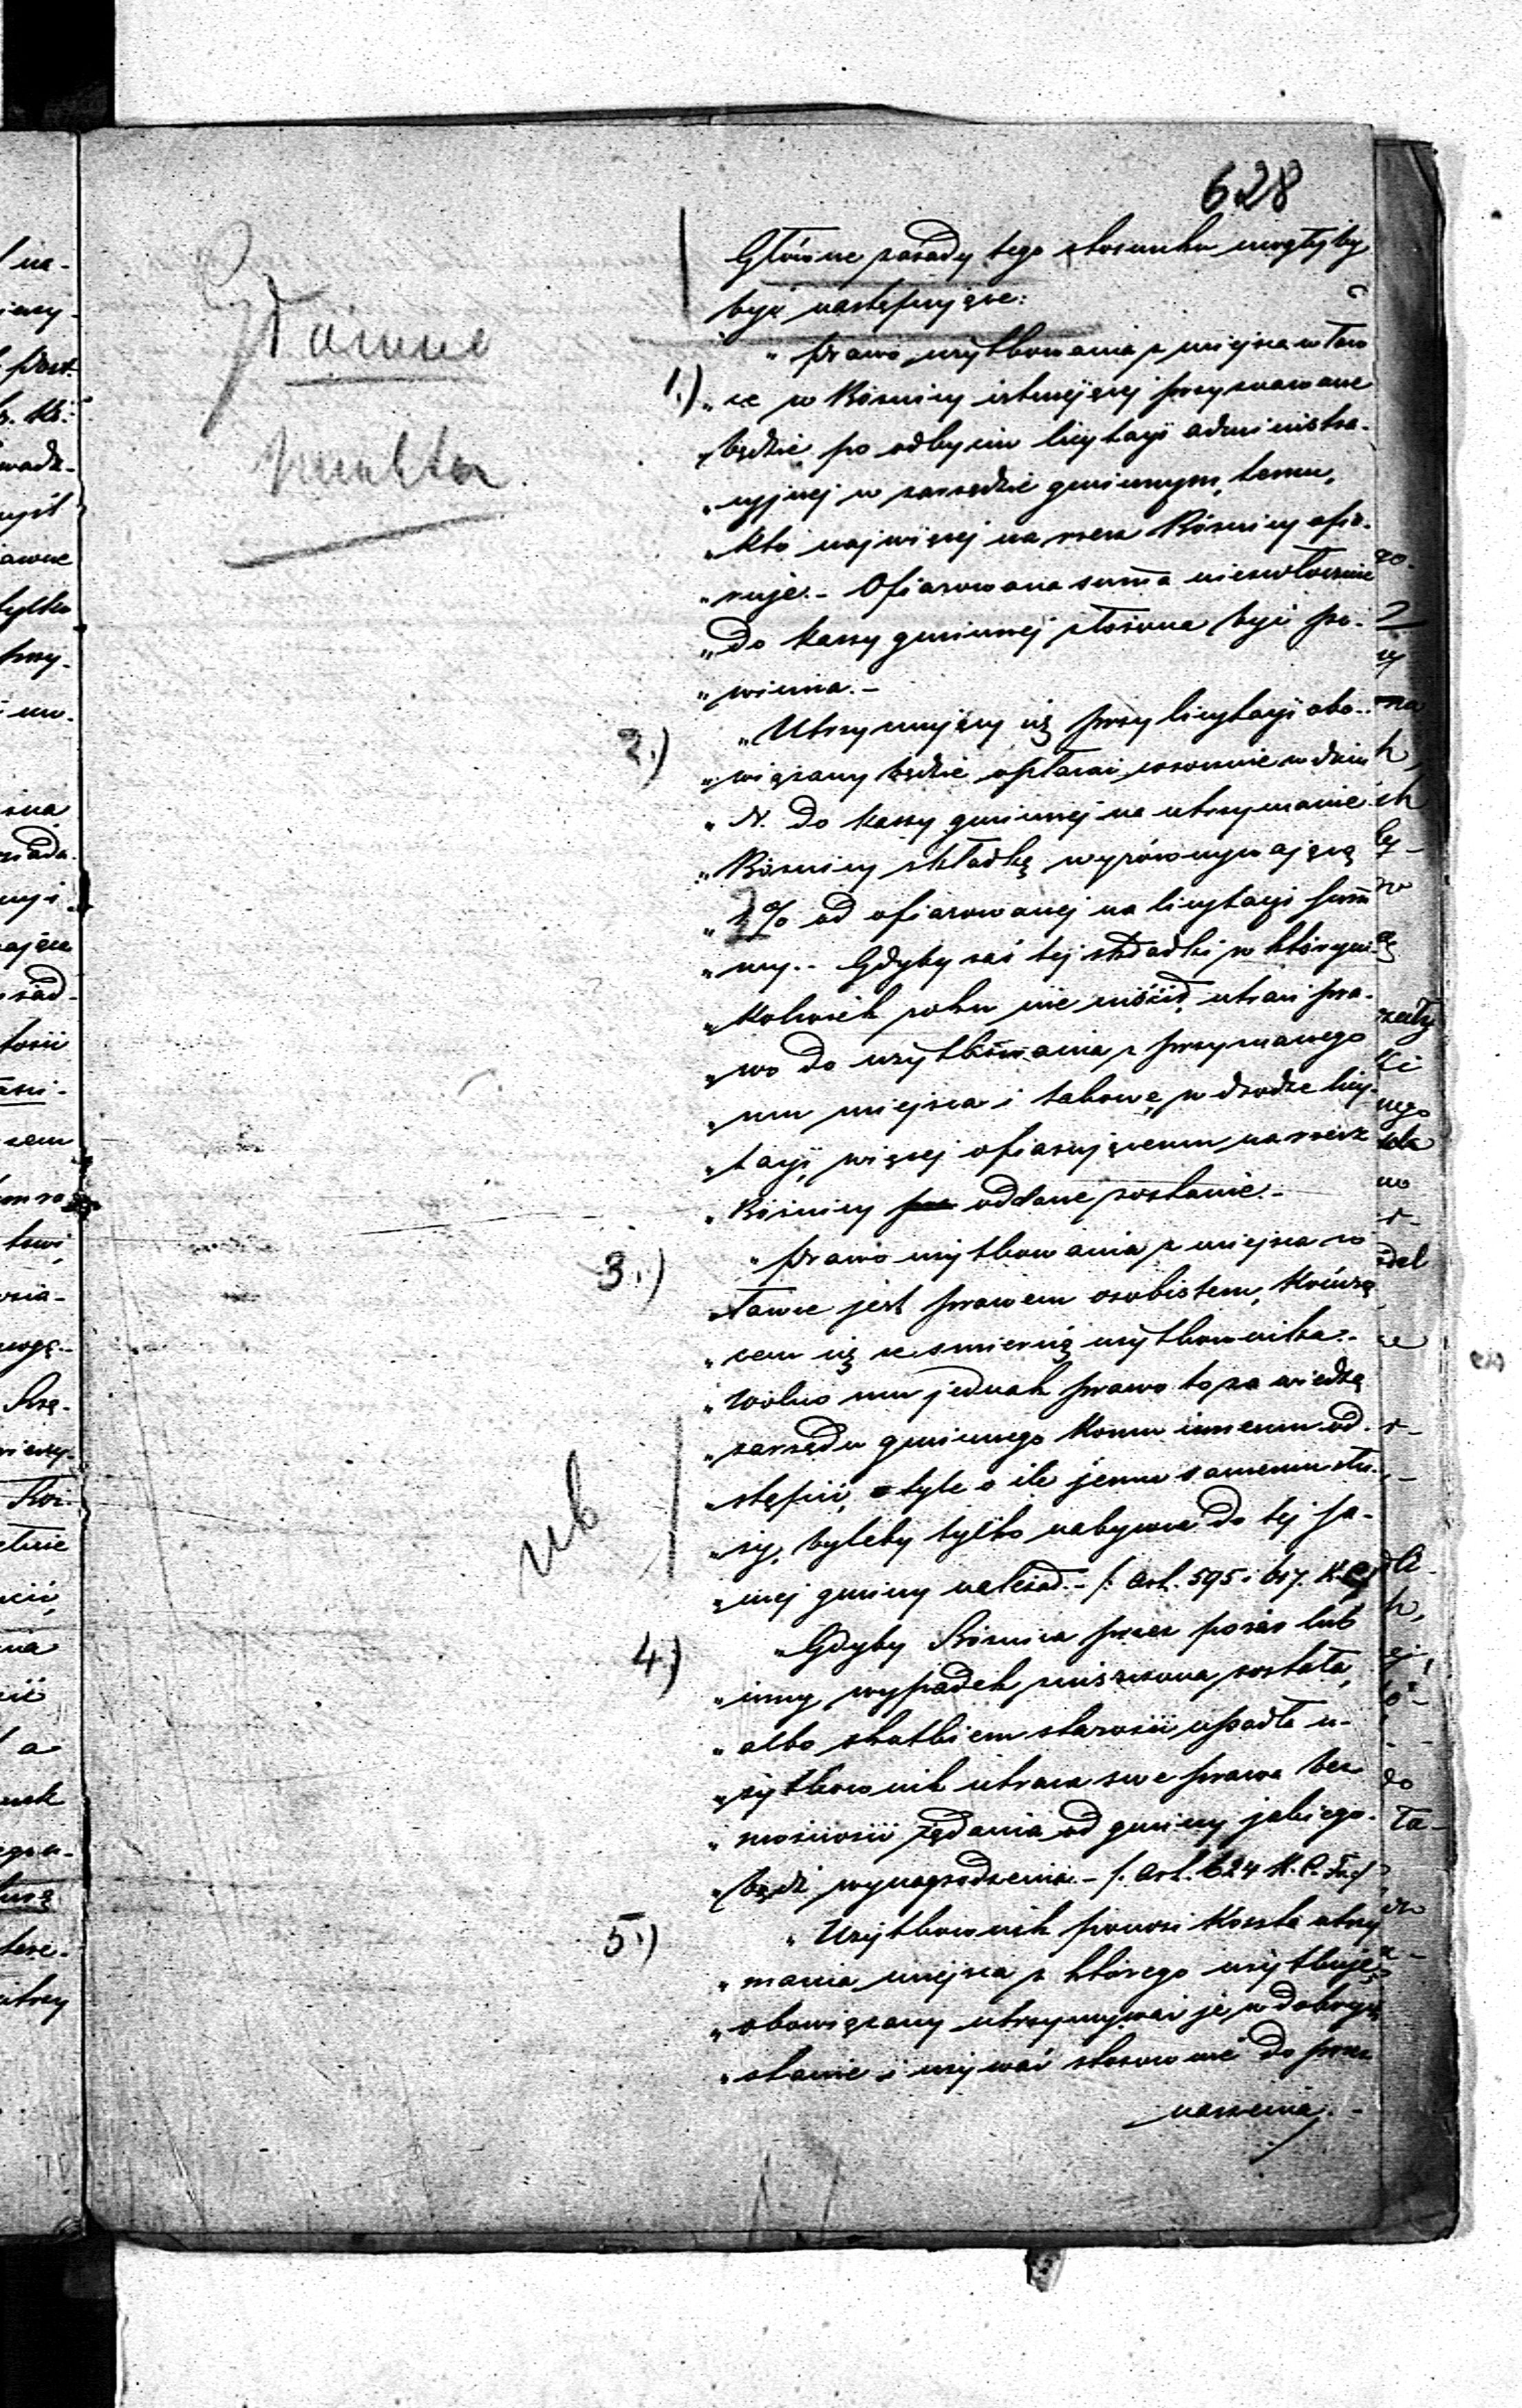 628
Główne zasady tego stosunku mogłyby
być następujące:
Główne
punkta.
„Prawo użytkowania z miejsca w Ław
1.) „ce w Bóżnicy istniejącej przyznawane
„będzie po odbyciu licytacyi administra-
„cyjnej w zarządzie gminnym, temu,
„kto najwięcej na rzecz Bóżnicy ofia-
„ruje.- Ofiarowana summa niezwłocznie
„do kassy gminnej złożona być po-
„winna.-
2.) „Utrzymujący się przy licytacyi obo-
„wiązany będzie opłacać corocznie w dniu
„N. do kassy gminnej na utrzymanie
„Bóżnicy składkę wyrównywającą
„2% od ofiarowanej na licytacyi sum̄
„my.- Gdyby zaś tej składki w którym-
„kolwiek roku nie uiścił, utraci pra-
„wo do użytkowania z przyznanego
„mu miejsca i takowe, w drodze licy-
„tacyi, więcej ofiarującemu na rzecz
„Bóżnicy oddane zostanie.-
3.) „Prawo użytkowania z miejsca w
„Ławce jest prawem osobistem, kończą
„cem się ze śmiercią użytkownika.-
„Wolno mu jednak prawo to za wiedzą
„zarządu gminnego komu innemu od-
„stąpić, o tyle o ile jemu samemu słu-
ub
„ży, byleby tylko nabywca do tej sa-
„mej gminy należał.- /: Art. 595 i 617. K.C./
4.) „Gdyby Bóżnica przez pożar lub
„inny wypadek zniszczona została,
„albo skutkiem starości upadła u-
„żytkownik utraca swe prawa bez
„możności żądania od gminy jakiego-
„bądź wynagrodzenia.- /: Art. 624 K.C.
5.) „Użytkownik ponosi koszta utrzy
„mania miejsca z którego użytkuje,
„obowiązany utrzymywać je w dobrym
„stanie i używać stosownie do prze
znaczenia.-